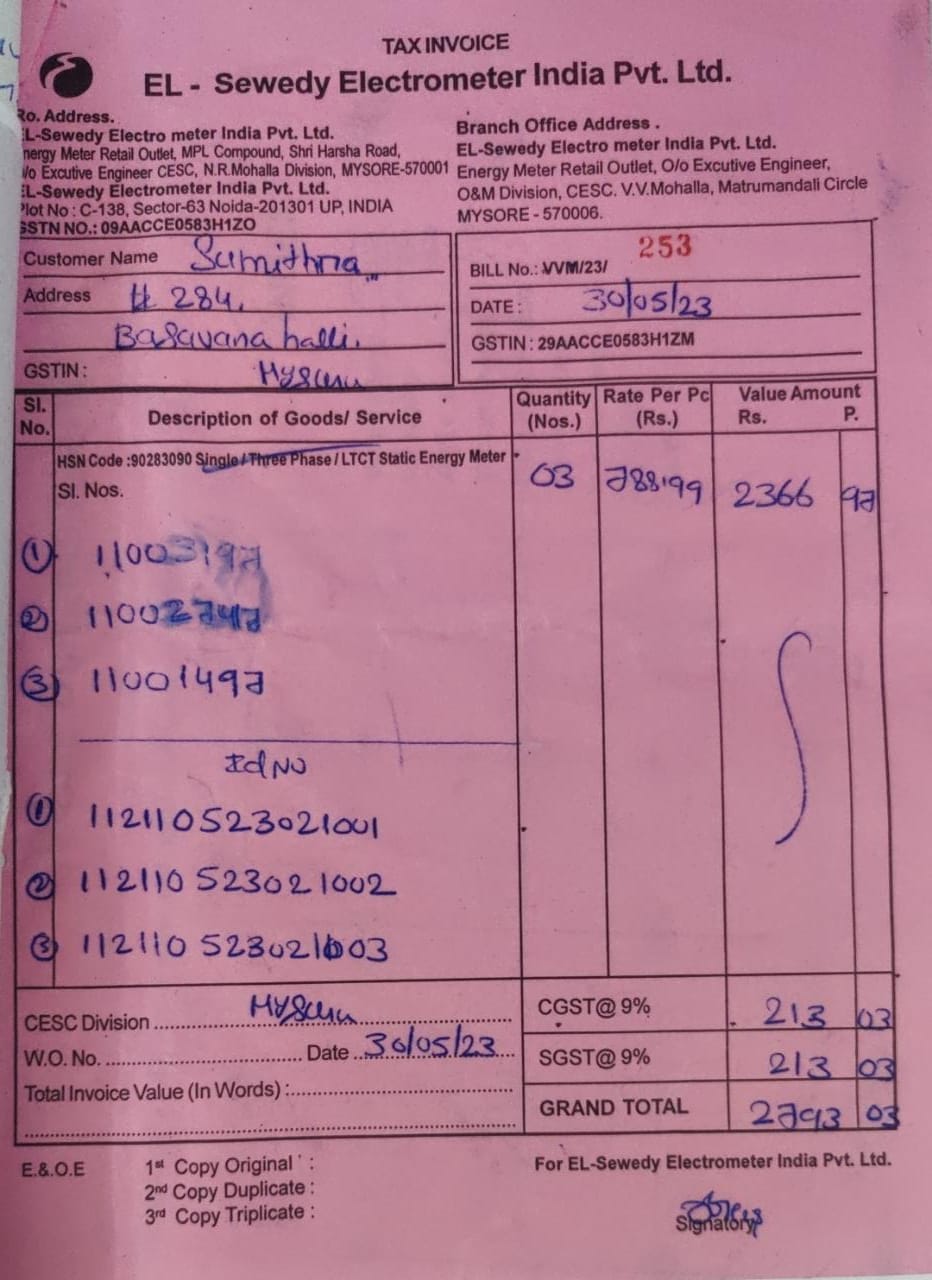 TAX INVOICE
EL - Sewedy Electrometer India Pvt. Ltd.
Ro. Address.
EL-Sewedy Electro meter India Pvt. Ltd.
nergy Meter Retail Outlet, MPL Compound, Shri Harsha Road,
/o Excutive Engineer CESC, N.R.Mohalla Division, MYSORE-570001
EL-Sewedy Electrometer India Pvt. Ltd.
Plot No : C-138, Sector-63 Noida-201301 UP, INDIA
GSTN NO.: 09AACCE0583H1ZO
Branch Office Address .
EL-Sewedy Electro meter India Pvt. Ltd.
Energy Meter Retail Outlet, O/o Excutive Engineer,
O&M Division, CESC. V.V.Mohalla, Matrumandali Circle
MYSORE - 570006.
Customer Name Sumithra
Address # 284,
Basavanahalli,
GSTIN : Mysuru
253
BILL No.: VVM/23/
DATE : 30/05/23
GSTIN : 29AACCE0583H1ZM
Sl. No. Description of Goods/ Service Quantity (Nos.) Rate Per Pc (Rs.) Value Amount Rs. P.
HSN Code :90283090 Single / Three Phase / LTCT Static Energy Meter
Sl. Nos. 03 788.99 2366 97
① 11003197
② 11002747
③ 11001497
Id No
① 112110523021001
② 112110 523021002
③ 112110 523021003
CESC Division Mysuru
W.O. No. Date 30/05/23
Total Invoice Value (In Words) :
CGST@ 9% 213 03
SGST@ 9% 213 03
GRAND TOTAL 2793 03
E.&.O.E
1st Copy Original :
2nd Copy Duplicate :
3rd Copy Triplicate :
For EL-Sewedy Electrometer India Pvt. Ltd.
Signatory